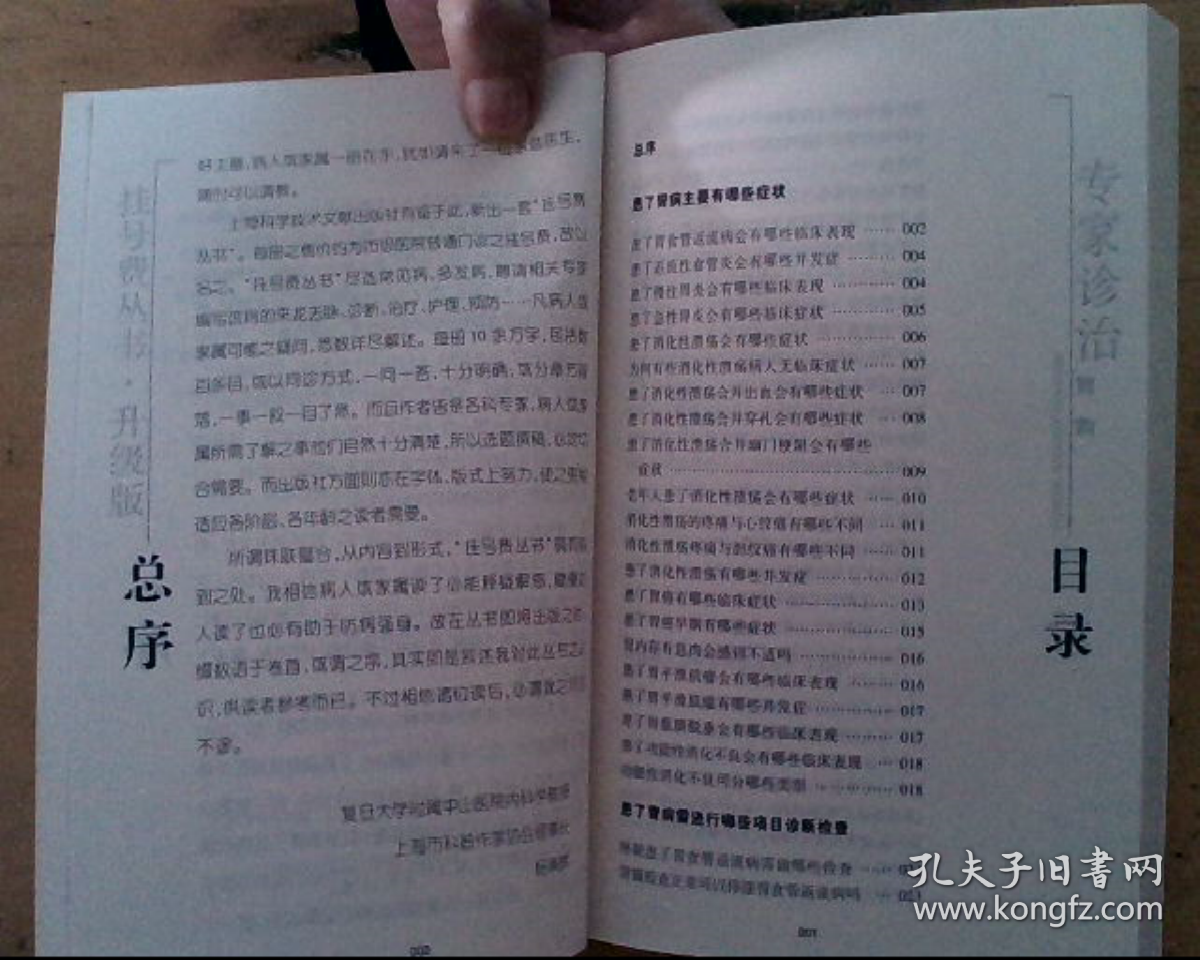 挂号费丛书·升级版
总序
随时可以请教。
上海科学技术文献出版社有鉴于此，新出一套“挂号费
丛书”。每册之售价约为市级医院普通门诊之挂号费，故以
名之。“挂号费丛书”尽选常见病、多发病，聘请相关专家
编写该病的来龙去脉、诊断、治疗、护理、预防……凡病人或
家属可能之疑问，悉数详尽解述。每册10余万字，包括数
百条目，或以问诊方式，一问一答，十分明确；或分章节段
落，一事一段一目了然。而且作者皆是各科专家，病人或家
属所需了解之事他们自然十分清楚，所以选题撰稿，必定切
合需要。而出版社方面则亦在字体、版式上努力，使之更能
适应各阶层、各年龄之读者需要。
所谓珠联璧合，从内容到形式，“挂号费丛书”
到之处。我相信病人或家属读了必能释疑解惑，健康之
人读了也必有助于防病强身。故在丛书即将出版之时，
缀数语于卷首，或谓之序，其实即是叙述我对此丛书之认
识，供读者参考而已。不过相信诸位读后，必谓我之所言
不谬。
复旦大学附属中山医院内科学教授
上海市科普作家协会理事长
杨秉辉
002
总序
患了胃病主要有哪些症状
患了胃食管返流病会有哪些临床表现 …… 002
患了返流性食管炎会有哪些并发症 …… 004
患了慢性胃炎会有哪些临床表现 …… 004
患了急性胃炎会有哪些临床症状 …… 005
患了消化性溃疡会有哪些症状 …… 006
为何有些消化性溃疡病人无临床症状 …… 007
患了消化性溃疡合并出血会有哪些症状 … 007
患了消化性溃疡合并穿孔会有哪些症状 … 008
患了消化性溃疡合并幽门梗阻会有哪些
症状 …… 009
老年人患了消化性溃疡会有哪些症状 … 010
消化性溃疡的疼痛与心绞痛有哪些不同 … 011
消化性溃疡疼痛与胆绞痛有哪些不同 … 011
患了消化性溃疡有哪些并发症 …… 012
患了胃癌有哪些临床症状 …… 013
患了胃癌早期有哪些症状 …… 015
胃内存有息肉会感到不适吗 …… 016
患了胃平滑肌瘤会有哪些临床表现 …… 016
患了胃平滑肌瘤有哪些并发症 …… 017
患了胃黏膜脱垂会有哪些临床表现 …… 017
患了功能性消化不良会有哪些临床表现 … 018
功能性消化不良可分哪些类型 …… 018
患了胃病需进行哪些项目诊断检查
怀疑患了胃食管返流病需做哪些检查
胃镜检查正常可以排除胃食管返流病吗
001
专家诊治
胃病
目录
孔夫子旧书网
www.kongfz.com